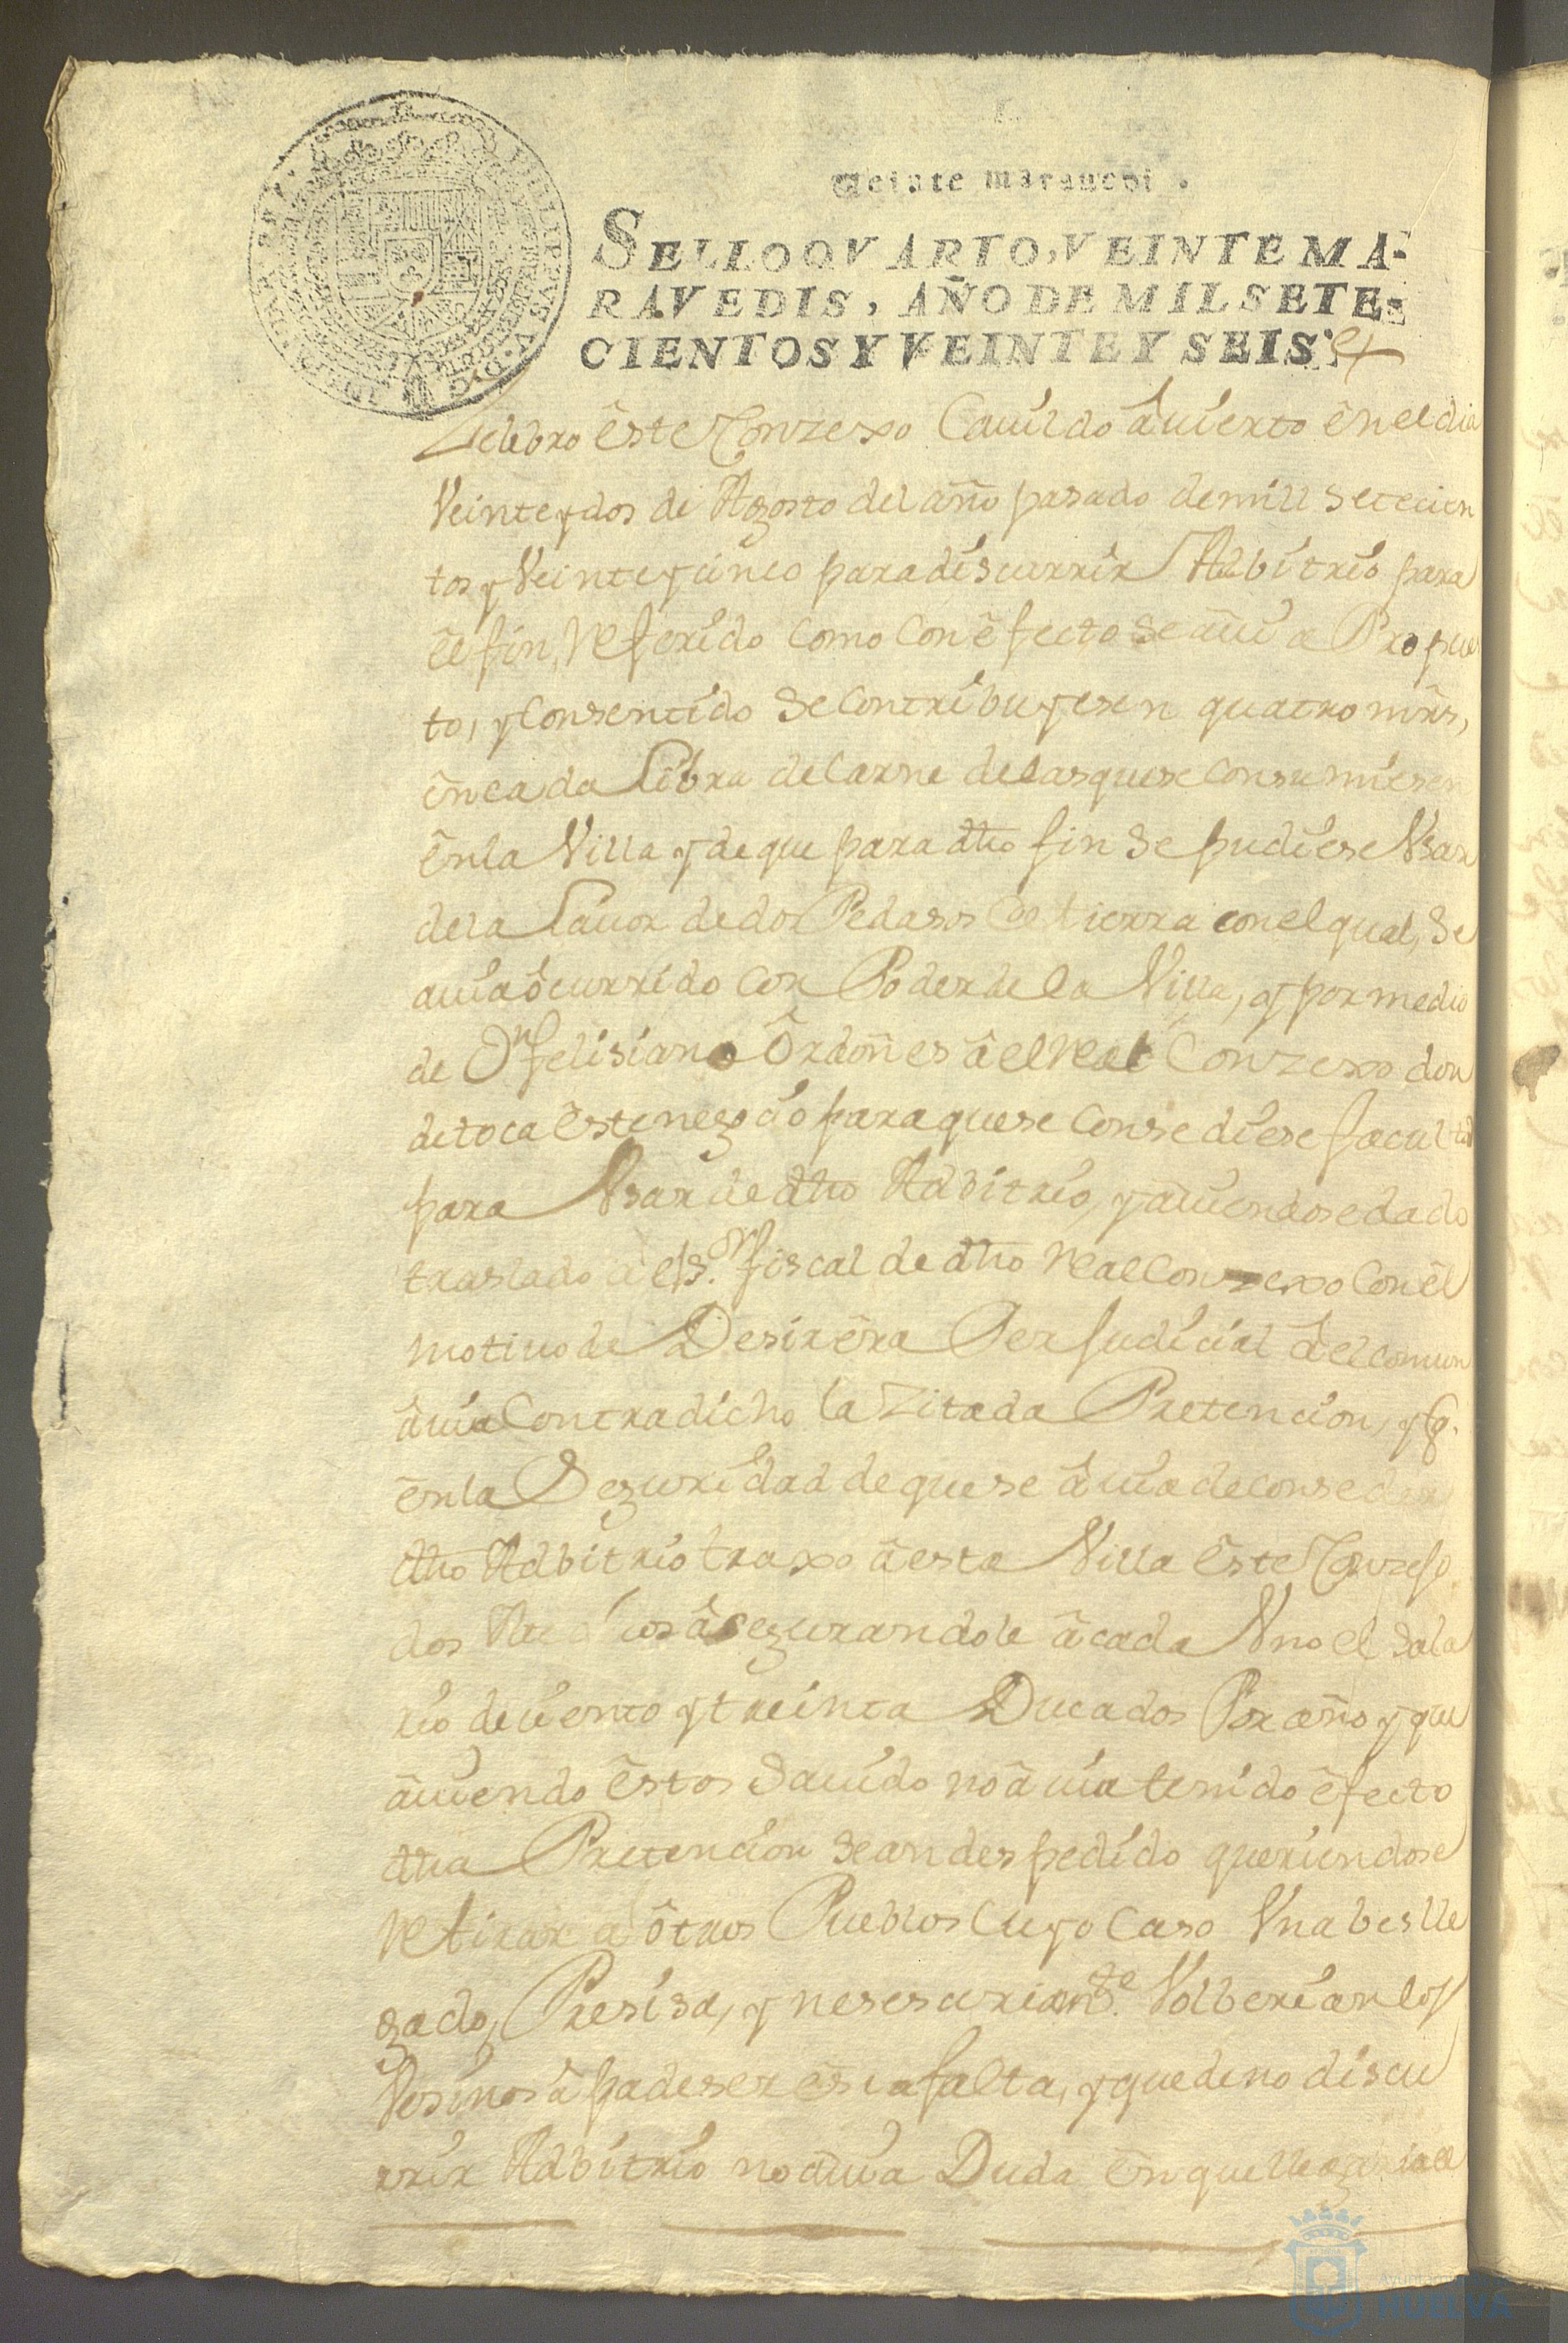 Veinte maravedi .
SELLO QVARTO, VEINTE MA-
RAVEDIS, AÑO DE MIL SETE-
CIENTOS Y VEINTE Y SEIS.
Zelebro êste Conzexo Cauildo âuierto ênel dia
Veinteydos de Agosto del año pasado demill setecien
tos y Veinteycinco paradiscurrir Adbitrio para
êl fin Referido como con êfecto se auia Propues
to, y Consentido se Contribuyesen quatro mrs,
êncada Libra de Carne delasquese Consumiesen
ênla Villa y deque para dho fin se pudiese Vsar
dela Lauor de dos Pedasos de tierra conelqual, se
auia ôcurrido con Poder de la Villa, y por medio
de Dn felisiano Ôrdoñes â el Real Conzexo don
de toca êste negocio paraquese Consediese facultad
para Vsar de dho Adbitrio, y auiendose dado
traslado a el Sor fiscal de dho Real Conzexo Con êl
motiuo de Desir êra Perjudicial â el comun
âuia Contradicho la Zitada Pretencion, y q.
ênla Seguridad de quese âuia de conseder
dho Adbitrio traxo â esta Villa êste Conzejo
dos Medicos âsegurandole â cada Vno el sala
rio de ciento y treinta Ducados Por año y que
âuiendo êstos sauido no âuia tenido êfecto
dha Pretencion se an despedido queriendose
Retirar a ôtros Pueblos Cuyo Caso Vna bes lle
gado, Presisa, y nesesariamte. Volberian los
Vesinos â padeser êsta falta, y que de no discu
rrir Adbitrio no auia Duda ên que
Ayuntamiento
HUELVA